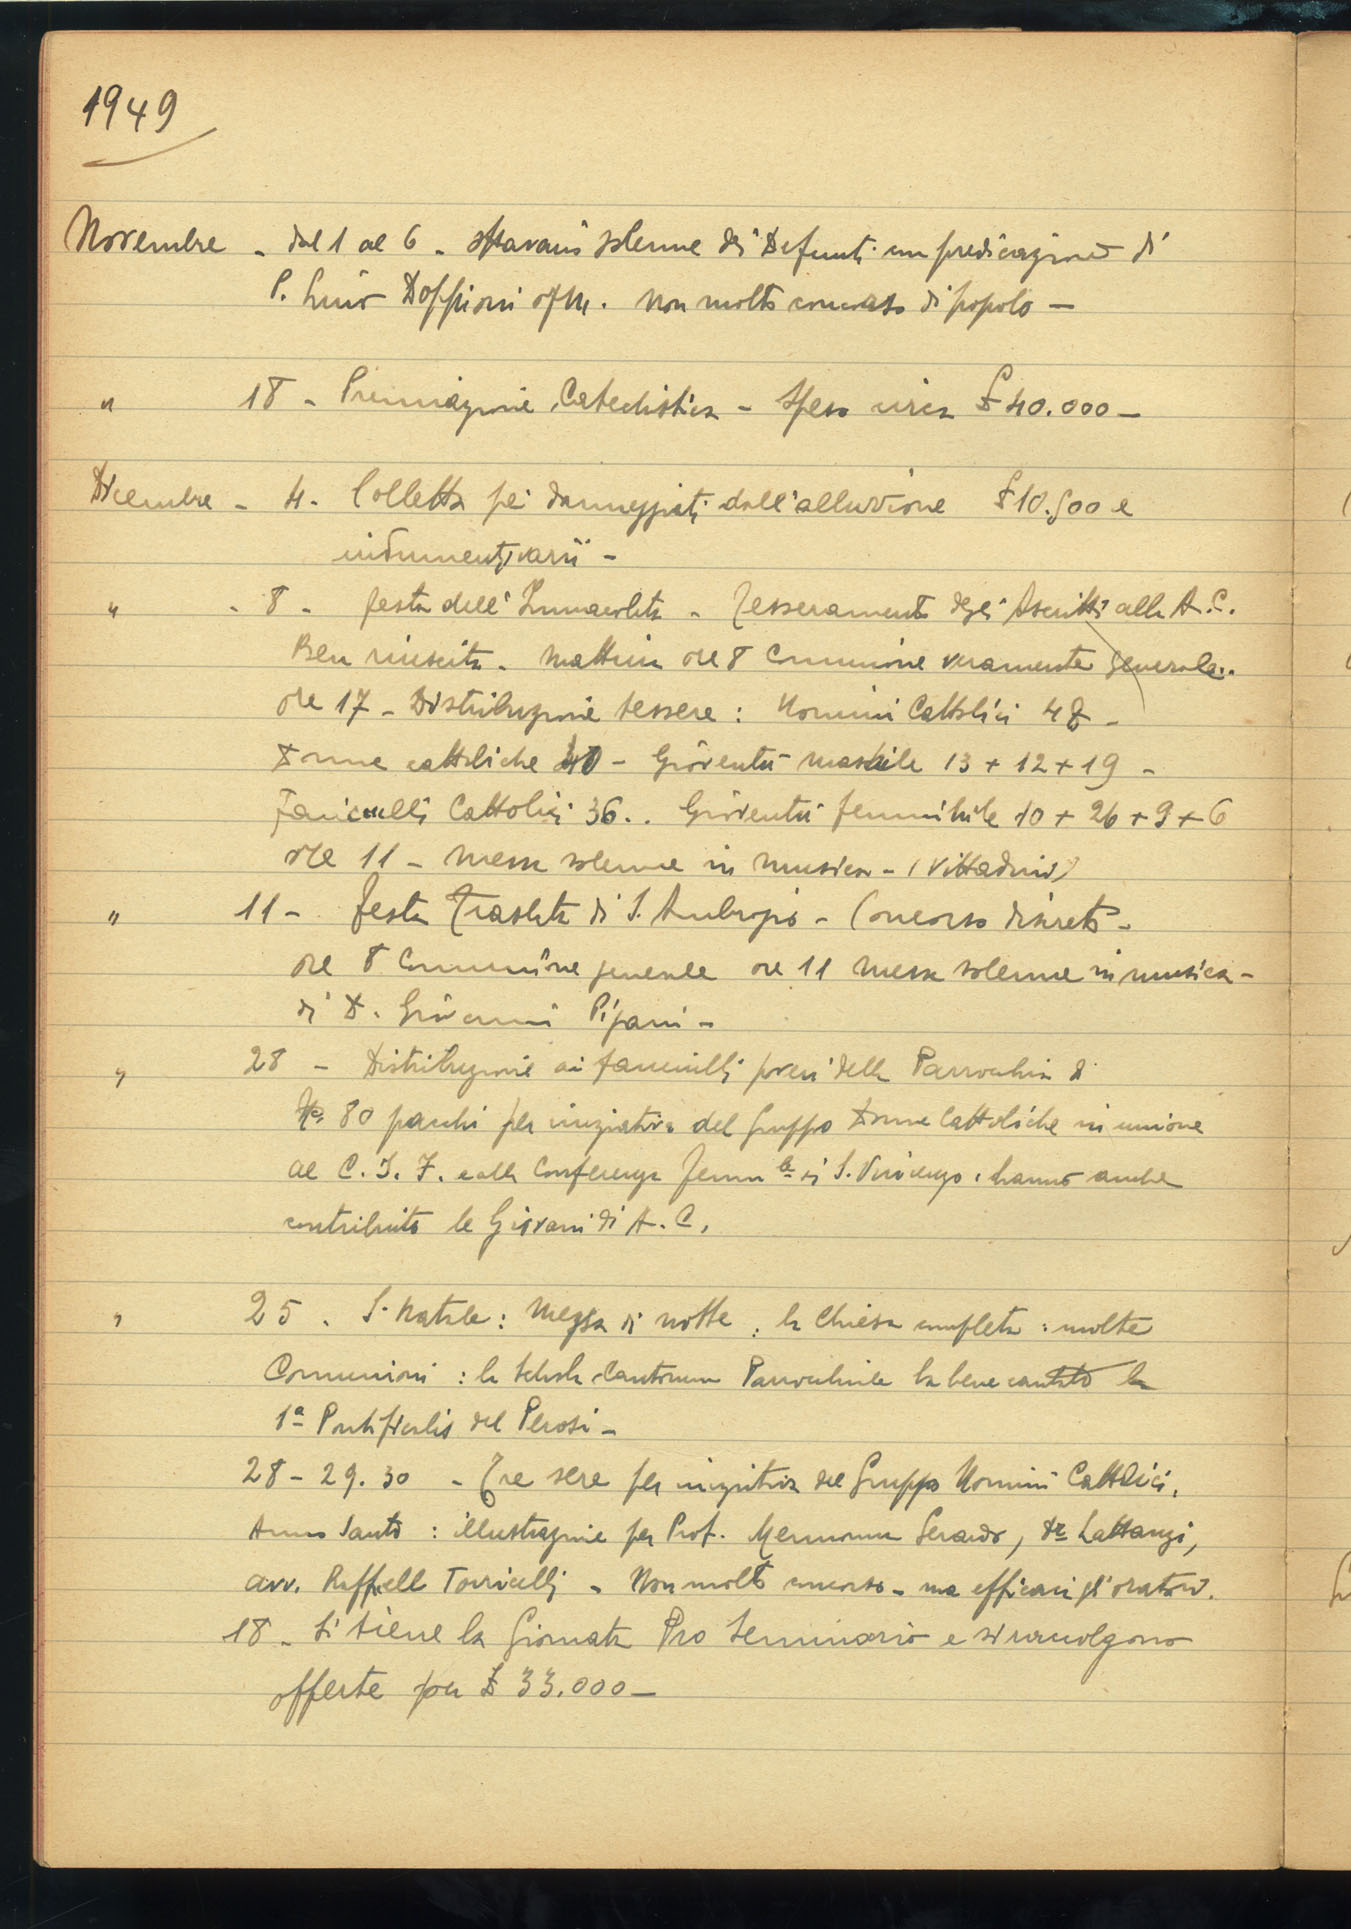 1949
Novembre - dal 1 al 6 - ottavario solenne dei Defunti con predicazione di
P. Lino Doppioni ofm. Non molto concorso di popolo —
" 18 - Premiazione Catechistica - Speso circa £ 40.000 —
Dicembre - 4 - Colletta pei danneggiati dall'alluvione £ 10.500 e
indumenti varii -
" - 8 - festa dell'Immacolata - Tesseramento degli Ascritti alla A. C.
Ben riuscita - mattina ore 8 Comunione veramente generale..
ore 17 - Distribuzione tessere : Uomini Cattolici 48 -
Donne cattoliche 40 - Gioventù maschile 13 + 12 + 19 -
Fanciulli Cattolici 36 . . Gioventù femminile 10 + 26 + 9 + 6
ore 11 - messa solenne in musica - (Vittadini)
" 11 - festa Traslata di S. Ambrogio - Concorso discreto -
ore 8 Comunione generale ore 11 messa solenne in musica -
di D. Giovanni Pigani -
" 28 - Distribuzione ai fanciulli poveri della Parrochia di
80 pacchi per iniziativa del Gruppo Donne Cattoliche in unione
al C. I. F. e alla Conferenza Femm.le di S. Vincenzo : hanno anche
contribuito le Giovani di A. C.
" 25 . S. Natale : Messa di notte : la Chiesa completa : molte
Comunioni : la Schola Cantorum Parrochiale ha bene cantato la
1ª Pontificalis del Perosi -
28 - 29 . 30 - Tre sere per iniziativa del Gruppo Uomini Cattolici,
Anno Santo : illustrazione per Prof. Gerardo, Dr Lattanzi,
avv. Raffaell Torricelli - Non molto concorso - ma efficaci gli oratori.
18 - Si tiene la Giornata Pro Seminario e si raccolgono
offerte per £ 33.000 —